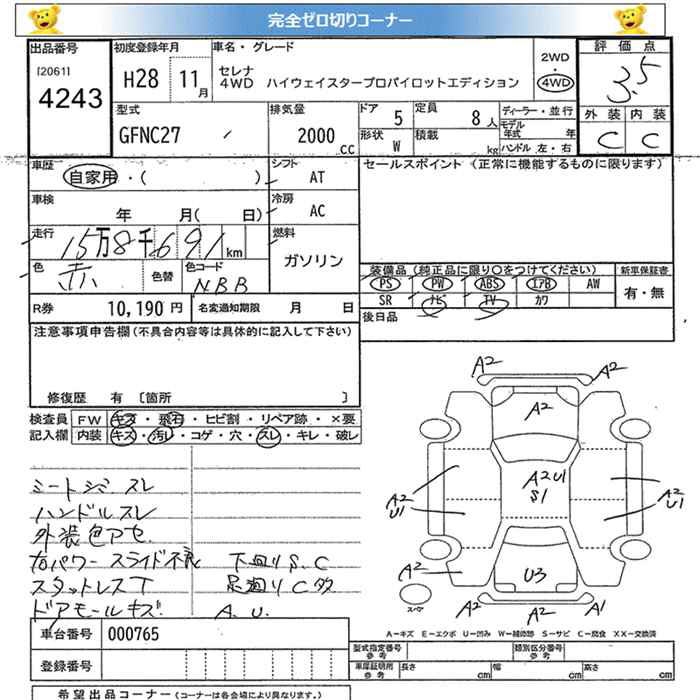 完全ゼロ切りコーナー
出品番号 初度登録年月 車名・グレード 2WD 評価点
[2061] H28 11月 セレナ 4WD ハイウェイスタープロパイロットエディション 4WD 3.5
4243
型式 排気量 ドア 5 定員 8人 ディーラー・並行 外装 内装
GFNC27 2000cc 形状 W 積載 kg モデル年式 年 C C
ハンドル 左・右
車歴 自家用・( ) シフト AT セールスポイント (正常に機能するものに限ります)
車検 年 月( 日) 冷房 AC
走行 15万8千691km 燃料 ガソリン
色 赤 色替 色コード NBB
装備品(純正品に限り○をつけてください) 新車保証書
PS PW ABS エアB AW 有・無
R券 10,190円 名変通知期限 月 日 SR ナビ TV カワ
後日品
注意事項申告欄(不具合内容等は具体的に記入して下さい)
修復歴 有 〔箇所 〕
検査員 FW キズ・飛石・ヒビ割・リペア跡・×要
記入欄 内装 キズ・汚レ・コゲ・穴・スレ・キレ・破レ
A2 A2
A2
A2U1
S1
A2
U1
A2
U1
A2
U3
A2 A2 A1
スペア
シートシミ スレ
ハンドルスレ
外装色アセ
右パワースライド不良 下廻りS.C
スタットレスT 足廻りC多
ドアモールキズ A.U.
A―キズ E―エクボ U―凹み W―補修跡 S―サビ C―腐食 XX―交換済
車台番号 000765
型式指定番号 参考 類別区分番号 参考
登録番号 車庫証明用 参考 長さ cm 幅 cm 高さ cm
希望出品コーナー(コーナーは各会場により異なります。)